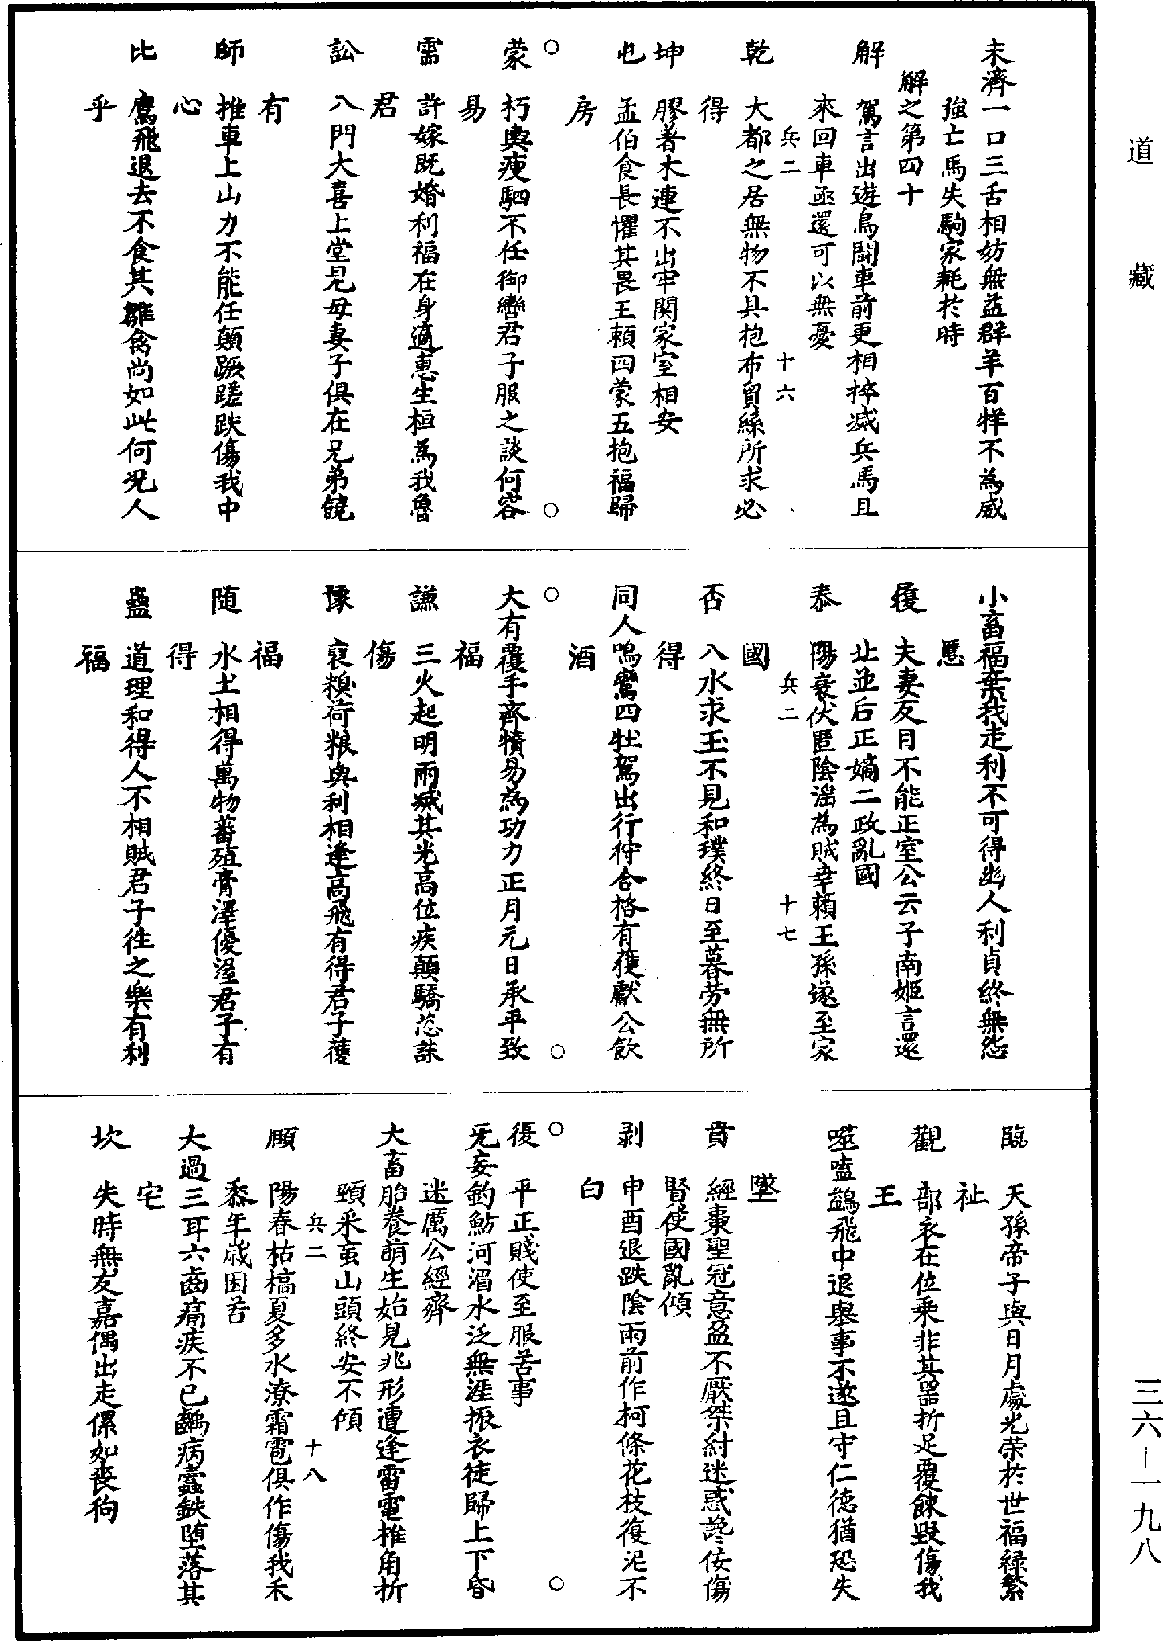 道藏
未濟一口三舌相妨無益群羊百牂不為威
強亡馬失駒家耗於時
解之第四十
解　駕言出遊鳥鬪車前更相捽滅兵馬且
來回車亟還可以無憂
兵二　十六
乾　大都之居無物不具抱布貿絲所求必
得
坤　膠著木連不出牢関家室相安
屯　孟伯食長懼其畏王賴四蒙五抱福歸
房
蒙　朽輿瘦駟不任御轡君子服之談何容
易
需　許嫁既婚利福在身適惠生桓為我魯
君
訟　八門大喜上堂見母妻子俱在兄弟饒
有
師　推車上山力不能任顛蹶蹉跌傷我中
心
比　鷹飛退去不食其雛禽尚如此何況人
乎
小畜福棄我走利不可得幽人利貞終無怨
慝
履　夫妻反目不能正室公云子南姬言還
北並后正嫡二政亂國
泰　陽衰伏匿陰淫為賊幸賴王孫遂至家
國
兵二　十七
否　八水求玉不見和璞終日至暮勞無所
得
同人鳴鸞四牡駕出行狩合格有獲獻公飲
酒
大有覆手齊犢易為功力正月元日承平致
福
謙　三火起明雨滅其光高位疾顛驕恣誅
傷
豫　裒糗荷粮與利相逢高飛有得君子獲
福
随　水土相得萬物蕃殖膏澤優渥君子有
得
蠱　道理和得人不相賊君子往之樂有利
福
臨　天孫帝子與日月處光荣於世福祿繁
祉
觀　部衣在位乘非其器折足覆餗毀傷我
王
噬嗑鷁飛中退舉事不遂且守仁德猶恐失
墜
賁　經棗聖冠意盈不厭桀紂迷惑讒佞傷
賢使國亂傾
剥　申酉退跌陰雨前作柯條花枝復泥不
白
復　平正賤使至服苦事
无妄釣鮎河湄水泛無涯振衣徒歸上下昏
迷厲公經齊
大畜胎養萌生始見兆形遭逢雷電椎角折
頸采䖟山頭終安不傾
兵二　十八
頤　陽春枯槁夏多水潦霜雹俱作傷我禾
黍年歲困苦
大過三耳六齒痛疾不已齲病蠹缺堕落其
宅
坎　失時無友嘉偶出走傫如喪狗
三六－一九八